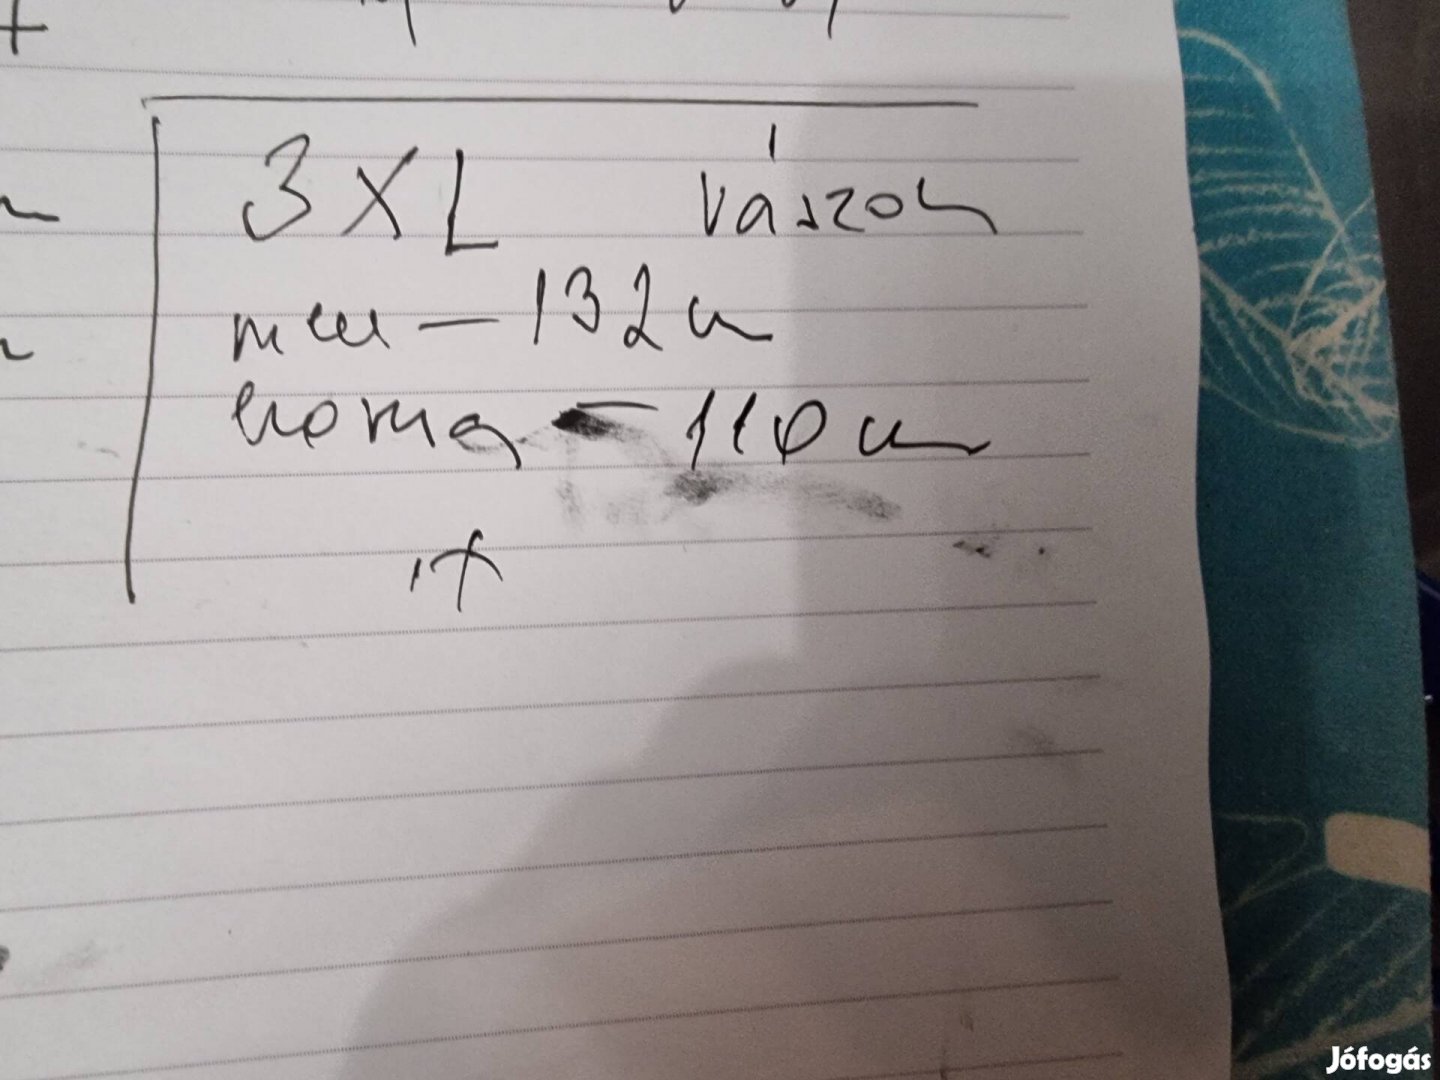 3XL vászon
mell — 132 cm
hossz — 110 cm
Jófogás